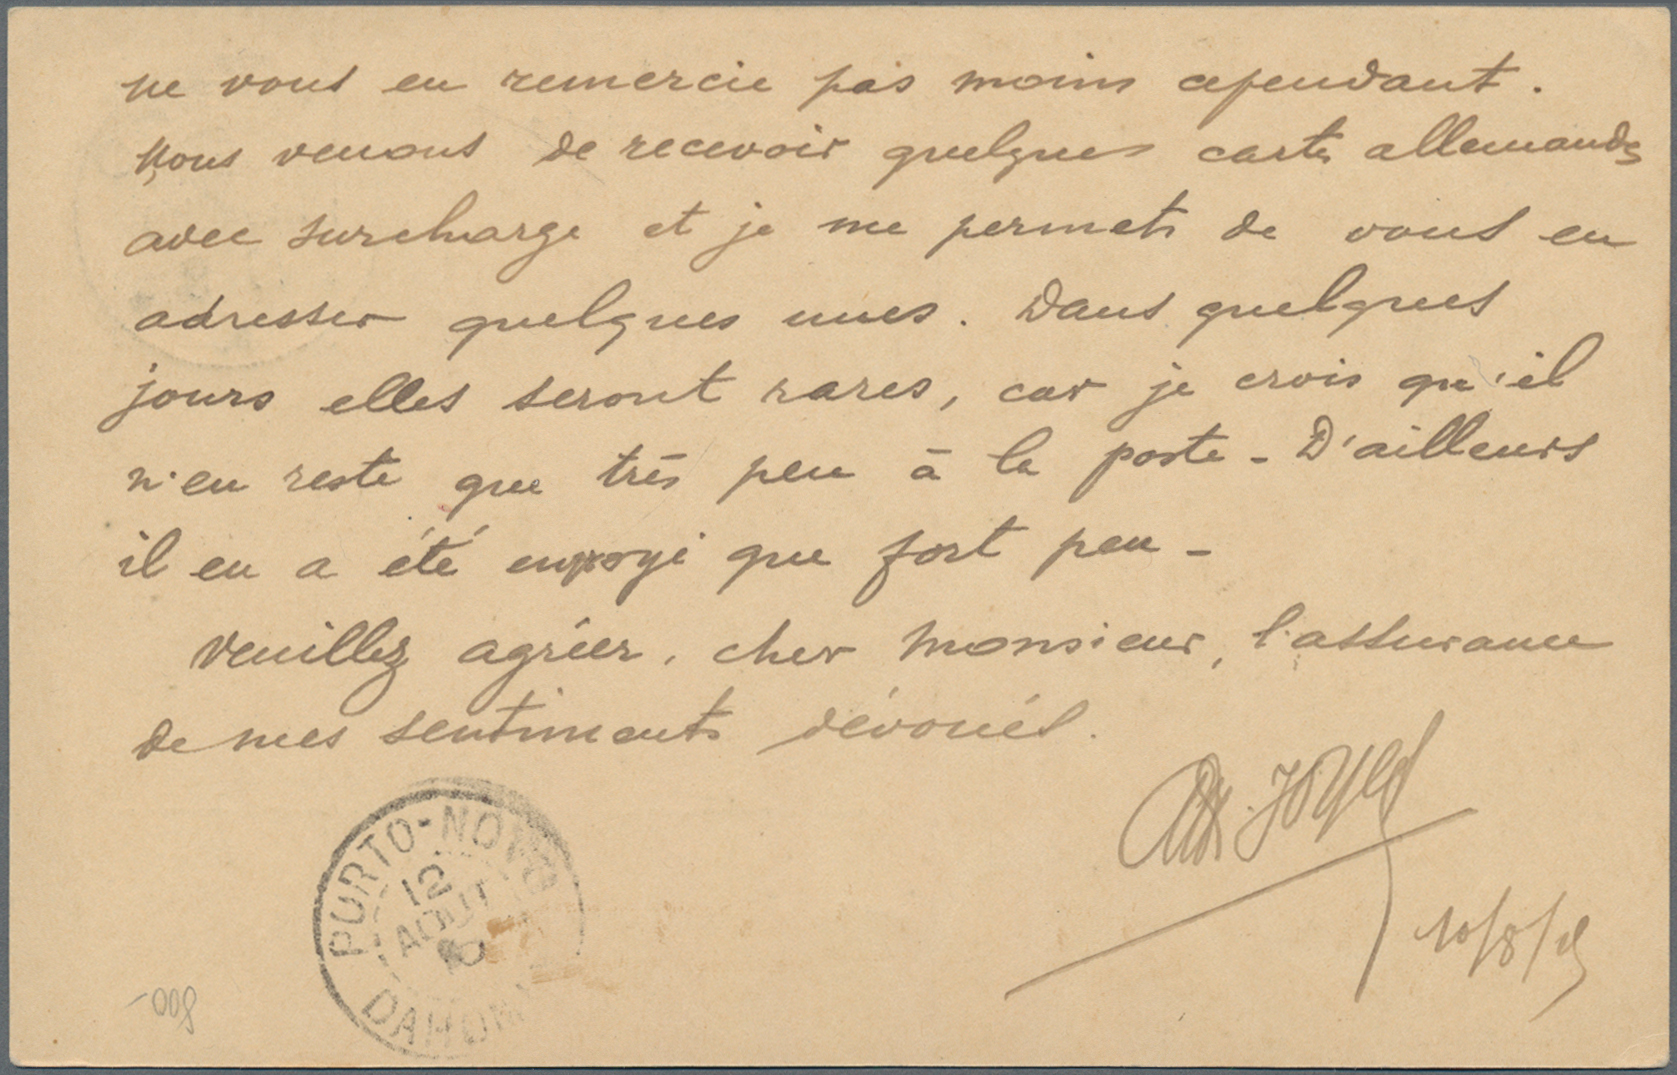 ne vous en remercie pas moins cependant.
Nous venons de recevoir quelques cartes allemandes
avec surcharge et je me permets de vous en
adresser quelques unes. Dans quelques
jours elles seront rares, car je crois qu'il
n'en reste que très peu à la poste - D'ailleurs
il en a été envoyé que fort peu -
Veuillez agréer, cher Monsieur, l'assurance
de mes sentiments dévoués.
10/8/15
PORTO-NOVO
12
AOUT
DAHOM